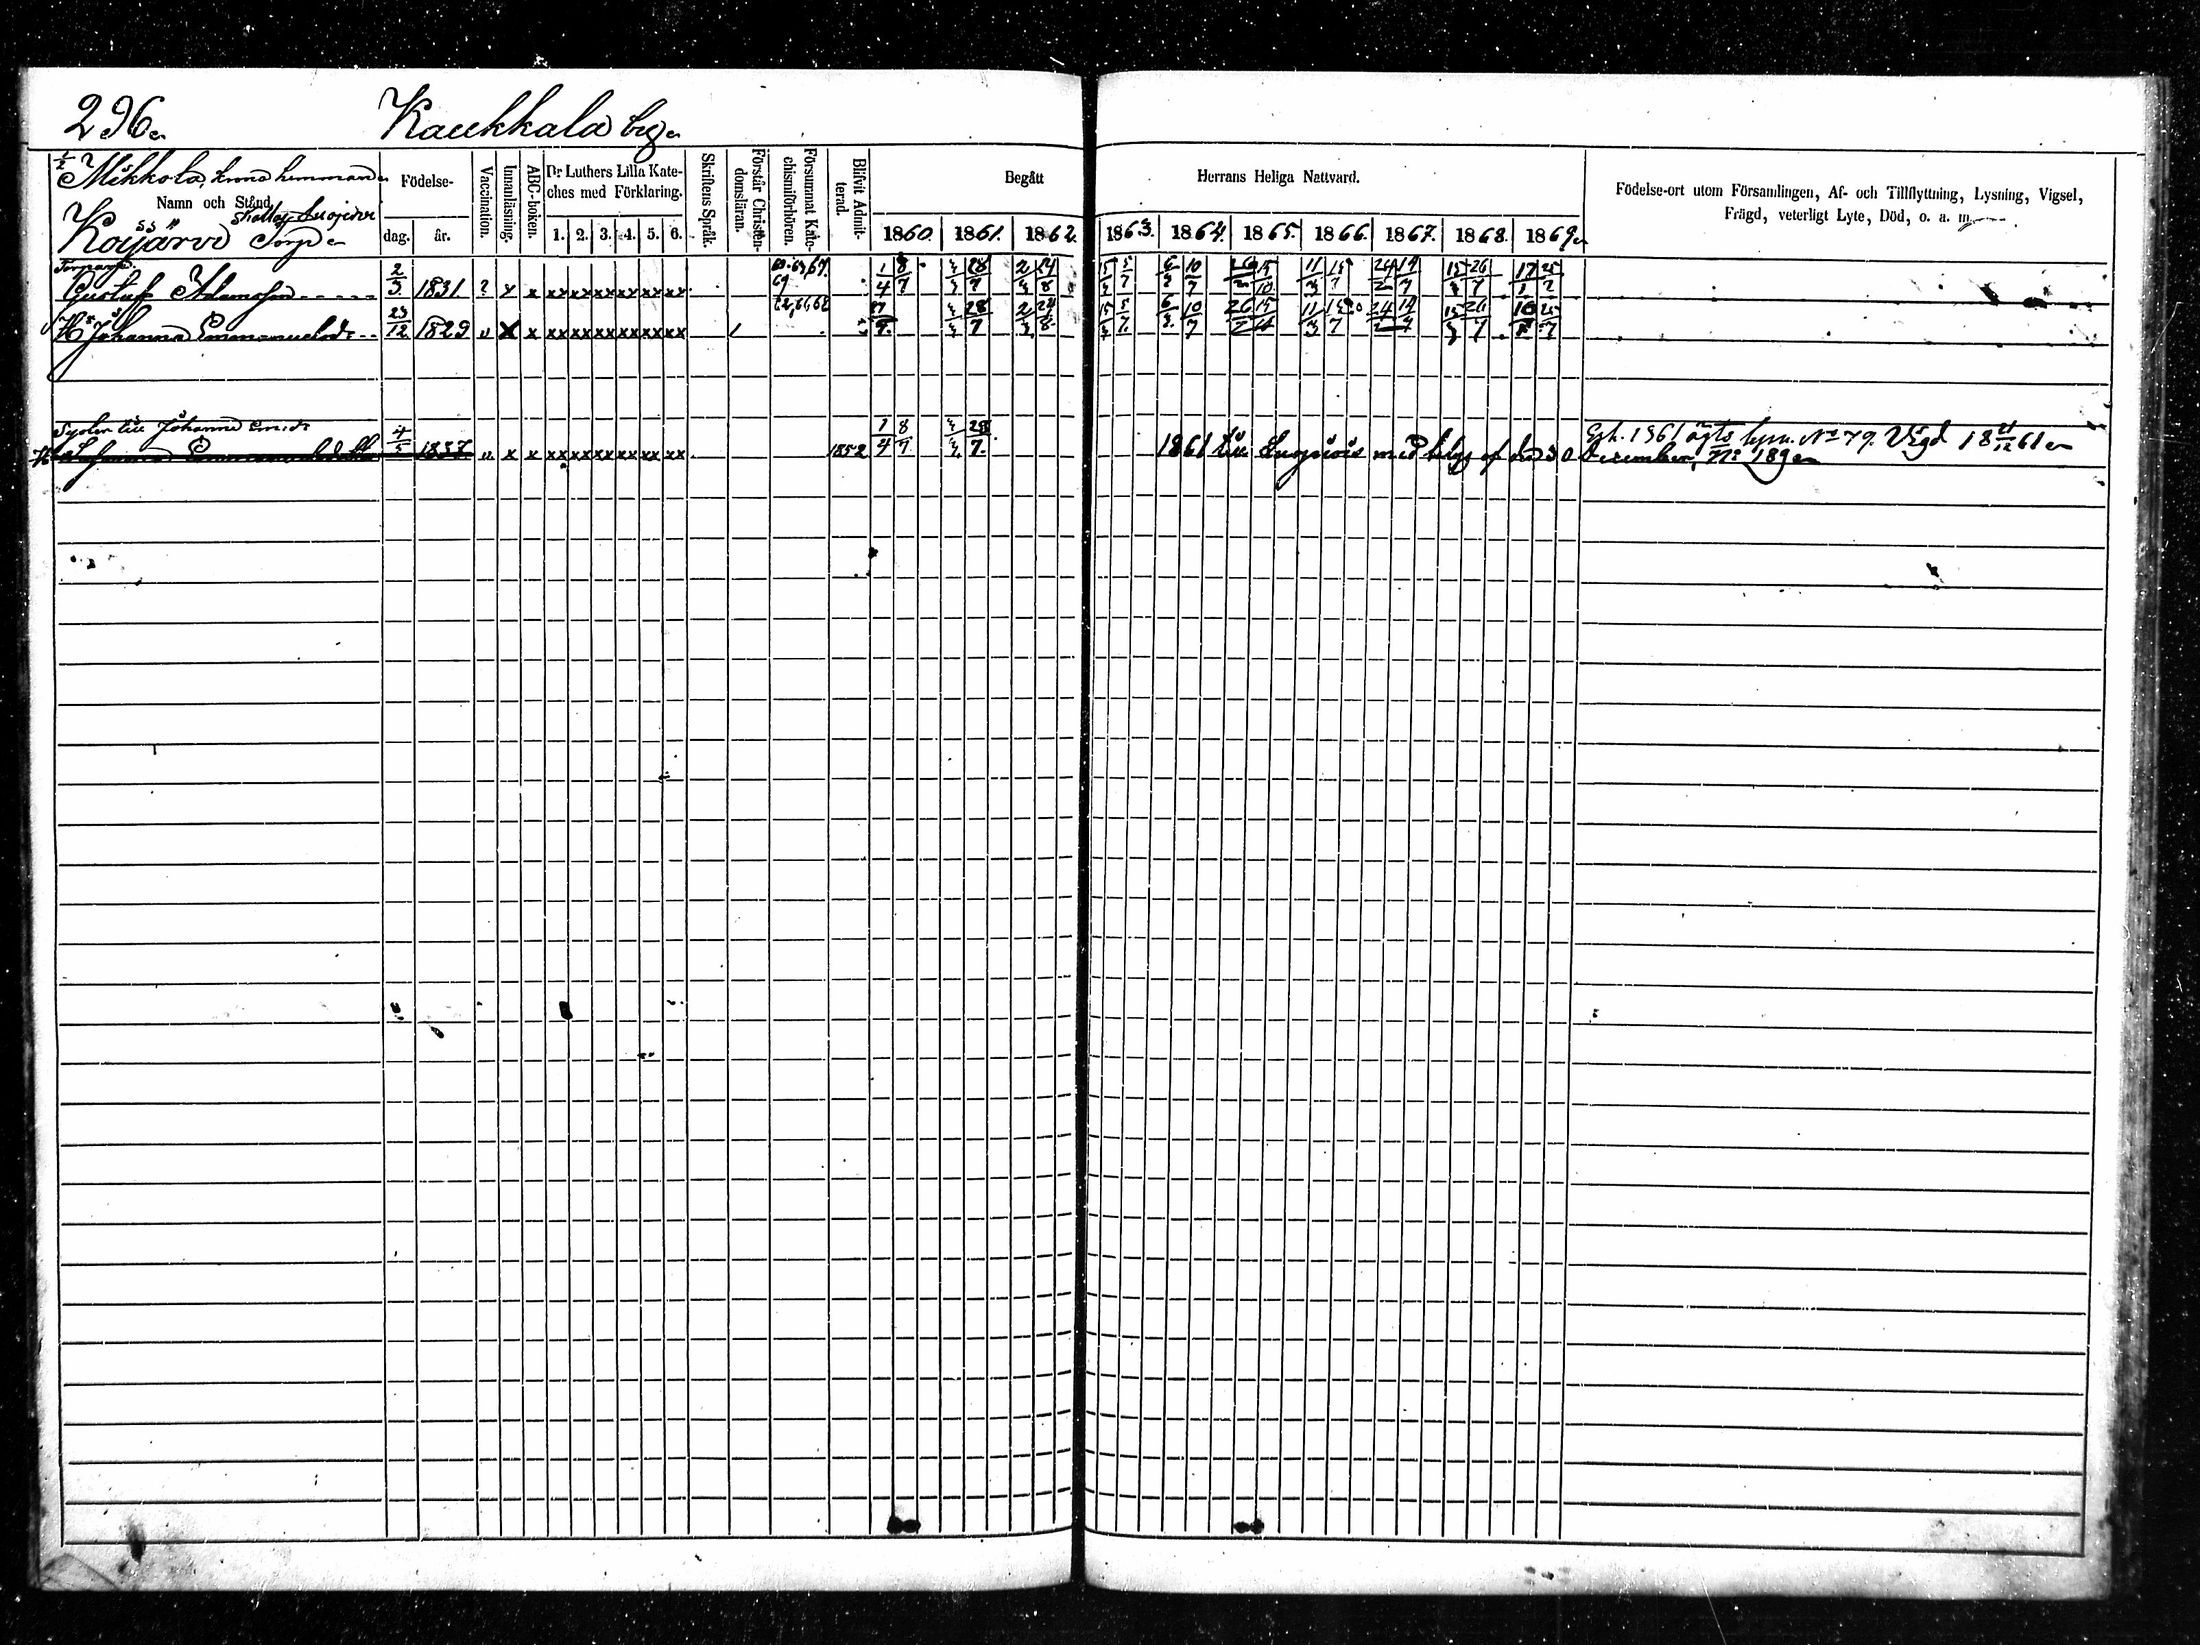 296.
Kaukkala by.
1/2 Mikkola, krono hemman
Namn och Stånd.
Kojjärvi Torp
Födelse-
dag. år.
Vaccination.
Innanläsning.
ABC-boken.
Dr Luthers Lilla Kate-
ches med Förklaring.
1. 2. 3. 4. 5. 6.
Skriftens Språk.
Förstår Christen-
domsläran.
Försummat Kate-
chismiförhören.
Blifvit Admit-
terad.
Begått
Herrans Heliga Nattvard.
1860. 1861. 1862. 1863. 1864. 1865. 1866. 1867. 1868. 1869.
Födelse-ort utom Församlingen, Af- och Tillflyttning, Lysning, Vigsel,
Frägd, veterligt Lyte, Död, o. a. m.
Torparen
Gustaf Adamsson 2/3 1831 ? x x xx xx xx xx xx xx 1/4 8/7 28/7 2/3 24/8 5/7 6/3 10/7 15/10 24/2 14/7 15/3 26/7
H:u Johanna Emmanuelsdr 23/12 1829 " x x xx xx xx xx xx xx 28/7 2/3 24/8 6/3 10/7 26/2 11/3 24/2 14/7 15/3 26/7
Syster till Johanna Em:dr
4/5 1837 " x x xx xx xx xx xx xx 1852 1/4 8/7 28/7 1861 till med betyg af den 30 December, No 189.
1861 ägts lysn. No 79. Vigd 18 21/12 61